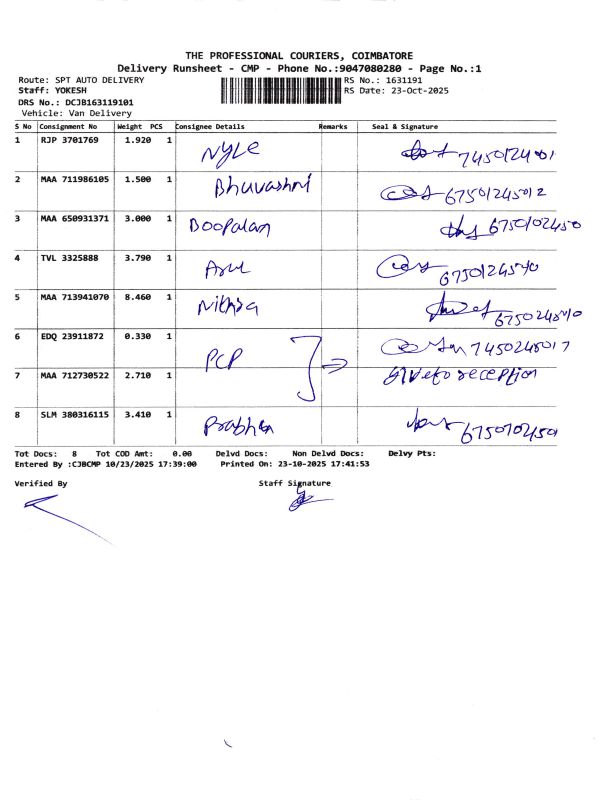 THE PROFESSIONAL COURIERS, COIMBATORE
Delivery Runsheet - CMP - Phone No.:9047080280 - Page No.:1
Route: SPT AUTO DELIVERY RS No.: 1631191
Staff: YOKESH RS Date: 23-Oct-2025
DRS No.: DCJB163119101
Vehicle: Van Delivery
S No Consignment No Weight PCS Consignee Details Remarks Seal & Signature
1 RJP 3701769 1.920 1 Nyle
2 MAA 711986105 1.500 1 Bhuvashni 67501245012
3 MAA 650931371 3.000 1 Boopalan 6750102450
4 TVL 3325888 3.790 1 Arul
5 MAA 713941070 8.460 1 Nithya
6 EDQ 23911872 0.330 1 PCP 7450245017
7 MAA 712730522 2.710 1 Give to reception
8 SLM 380316115 3.410 1 Prabha
Tot Docs: 8 Tot COD Amt: 0.00 Delvd Docs: Non Delvd Docs: Delvy Pts:
Entered By :CJBCMP 10/23/2025 17:39:00 Printed On: 23-10-2025 17:41:53
Verified By Staff Signature